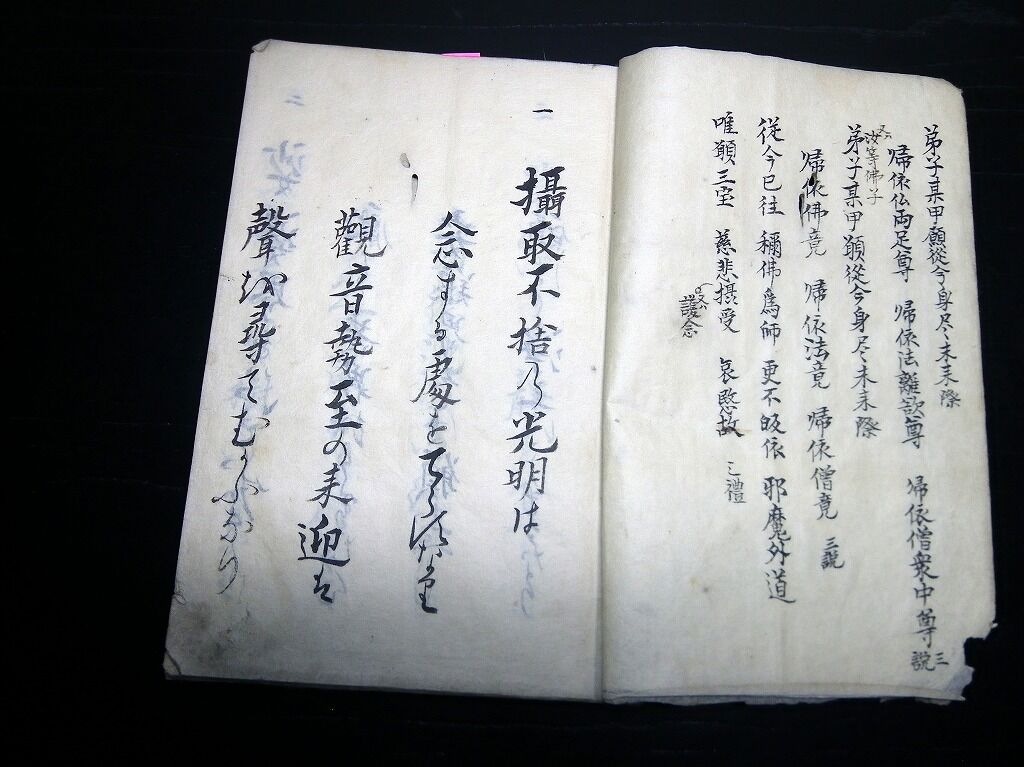 弟子某甲願從今身尽未来際
帰依仏両足尊 帰依法離欲尊 帰依僧衆中尊 三説
汝等佛子
弟子某甲願從今身尽未来際
帰依佛竟 帰依法竟 帰依僧竟 三説
從今已往 稱佛為師 更不皈依 邪魔外道
唯願三宝 慈悲摂受 哀愍故 三禮
護念
一
攝取不捨乃光明は
念する處を てらす なり
觀音勢至の来迎は
聲を尋てむかふなり
二